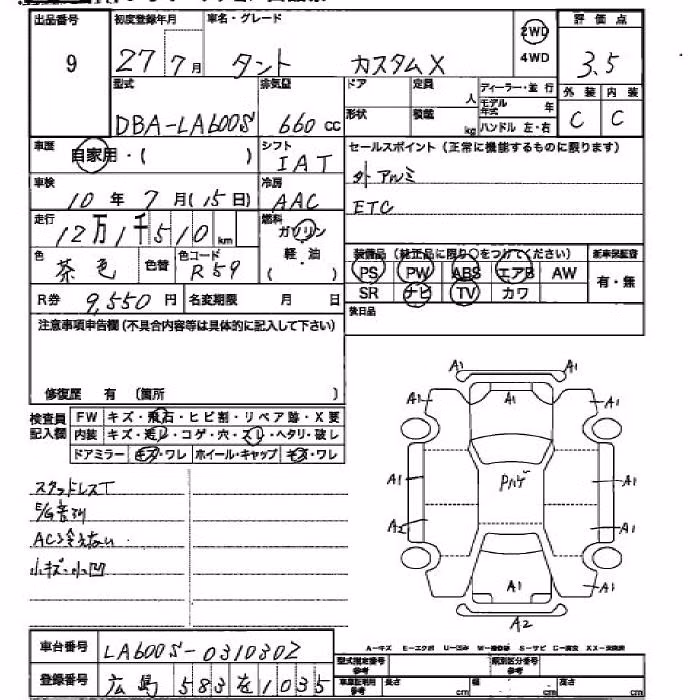 出品番号 初度登録年月 車名・グレード 2WD 4WD 評価点
9 27年7月 タント カスタムX 3.5
型式 排気量 ドア 定員 人 ディーラー・並行 外装 内装
DBA-LA600S 660 CC 形状 積載 kg モデル年式 年 ハンドル 左・右 C C
車歴 自家用・( ) シフト IAT セールスポイント(正常に機能するものに限ります)
車検 10年7月(15日) 冷房 AAC 外アルミ
ETC
走行 12万1千510km 燃料 ガソリン・軽油・( )
色 茶色 色替 色コード R59 装備品(純正品に限り○をつけてください) 新車保証書
PS PW ABS エアB AW 有・無
SR ナビ TV カワ
R券 9,550円 名変期限 月 日 後日品
注意事項申告欄(不具合内容等は具体的に記入して下さい)
修復歴 有 〔箇所 〕
検査員記入欄 FW キズ・飛石・ヒビ割・リペア跡・X要
内装 キズ・汚レ・コゲ・穴・スレ・ヘタリ・破レ
ドアミラー キズ・ワレ ホイール・キャップ キズ・ワレ
スタッドレスT
E/G音
AC冷えない
小キズ・小凹
A1 A1
A1 A1 A1
A1 Pハゲ A1
A2 A1
A1 A1
A2
A-キズ E-エクボ U-凹み W-補修跡 S-サビ C-腐食 XX-交換済
車台番号 LA600S-0310302
型式指定番号 参考 類別区分番号 参考
登録番号 広島 583 を 1035
車庫証明用 参考 長さ cm 幅 cm 高さ cm